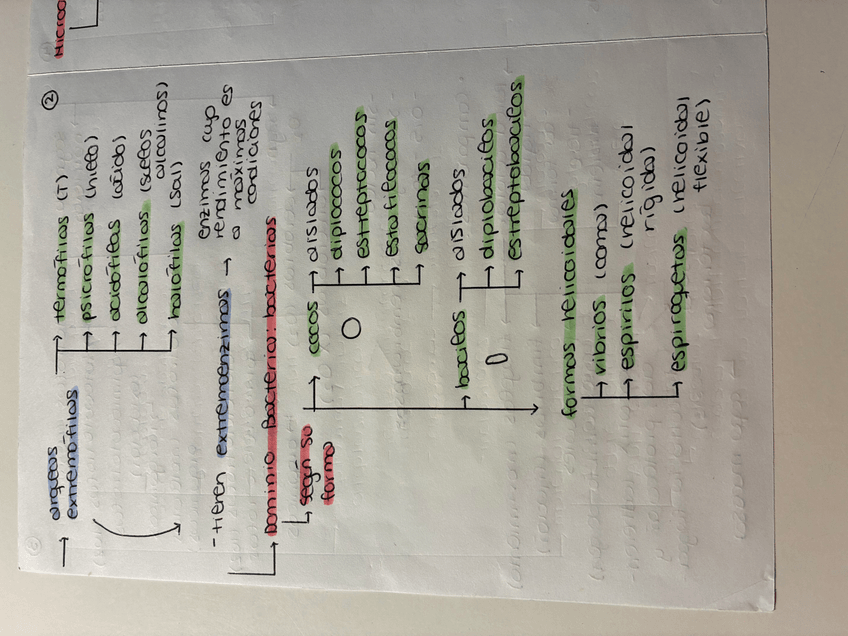 ②
→ arqueas extremófilas
→ termófilas (T)
→ psicrófilas (hielo)
→ acidófilas (ácido)
→ alcalófilas (suelos alcalinos)
→ halófilas (sal)
- tienen extremoenzimas → enzimas cuyo
rendimiento es
a máximas
condiciones
Dominio Bacteria: bacterias
según su
forma
cocos → aislados
→ diplococos
→ estreptococos
→ estafilococos
→ sarcinas
bacilos → aislados
→ diplobacilos
→ estreptobacilos
formas helicoidales
→ vibrios (coma)
→ espirilos (helicoidal
rígida)
→ espiroquetas (helicoidal
flexible)